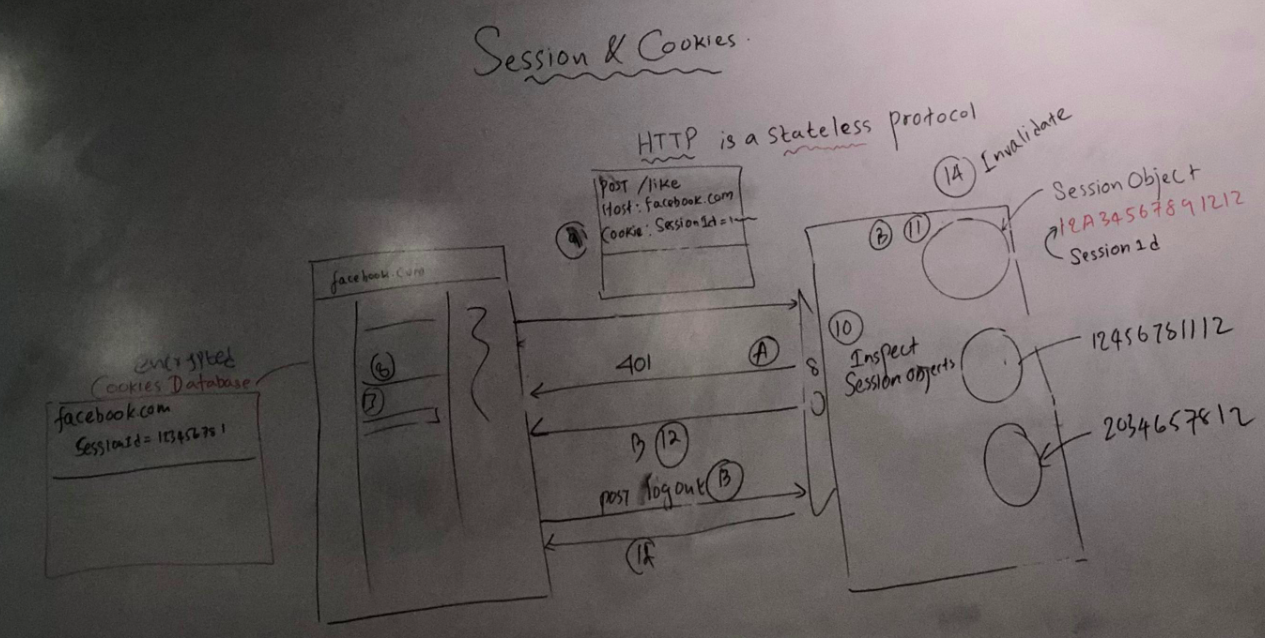 Session & Cookies.
HTTP is a stateless protocol
POST /like
Host: facebook.com
Cookie: SessionId=1
9
14 Invalidate
Session Object
12A34567891212
Session Id
B 11
facebook.com
encrypted
Cookies Database
facebook.com
SessionId = 123456781
8
401
A
80
10
Inspect
Session objects
12456781112
B 12
2034657812
post logout B